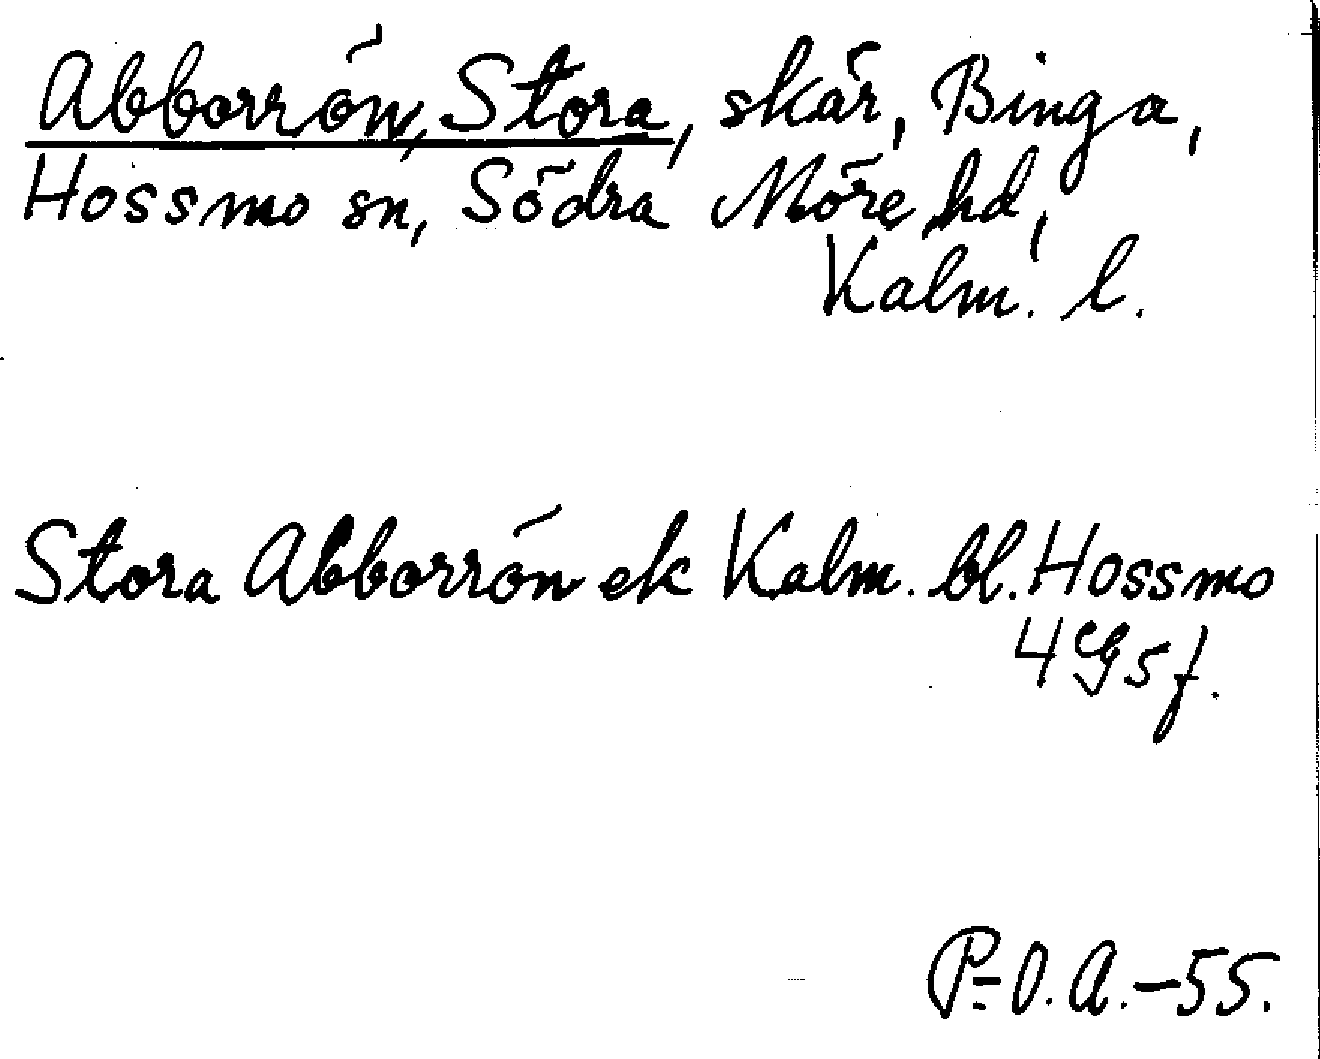 Abborrön, Stora, skär, Binga,
Hossmo sn, Södra Möre hd,
Kalm. l.
Stora Abborrön ek Kalm. bl. Hossmo
4 g 5 f.
P-O. A. -55.